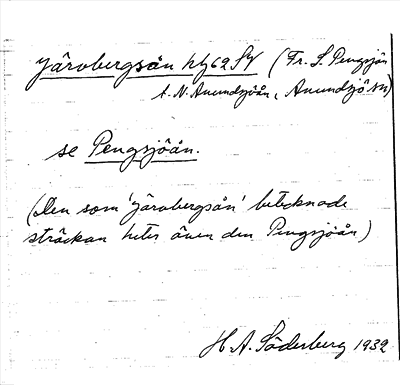 Järvbergsån hfg62SV (Fr. S. Pengsjön
t. N. Anundsjöån, Anundsjö sn)
se Pengsjöån.
(Den som 'Järvbergsån' betecknade
sträckan heter även den Pengsjöån)
H. A. Söderberg 1932